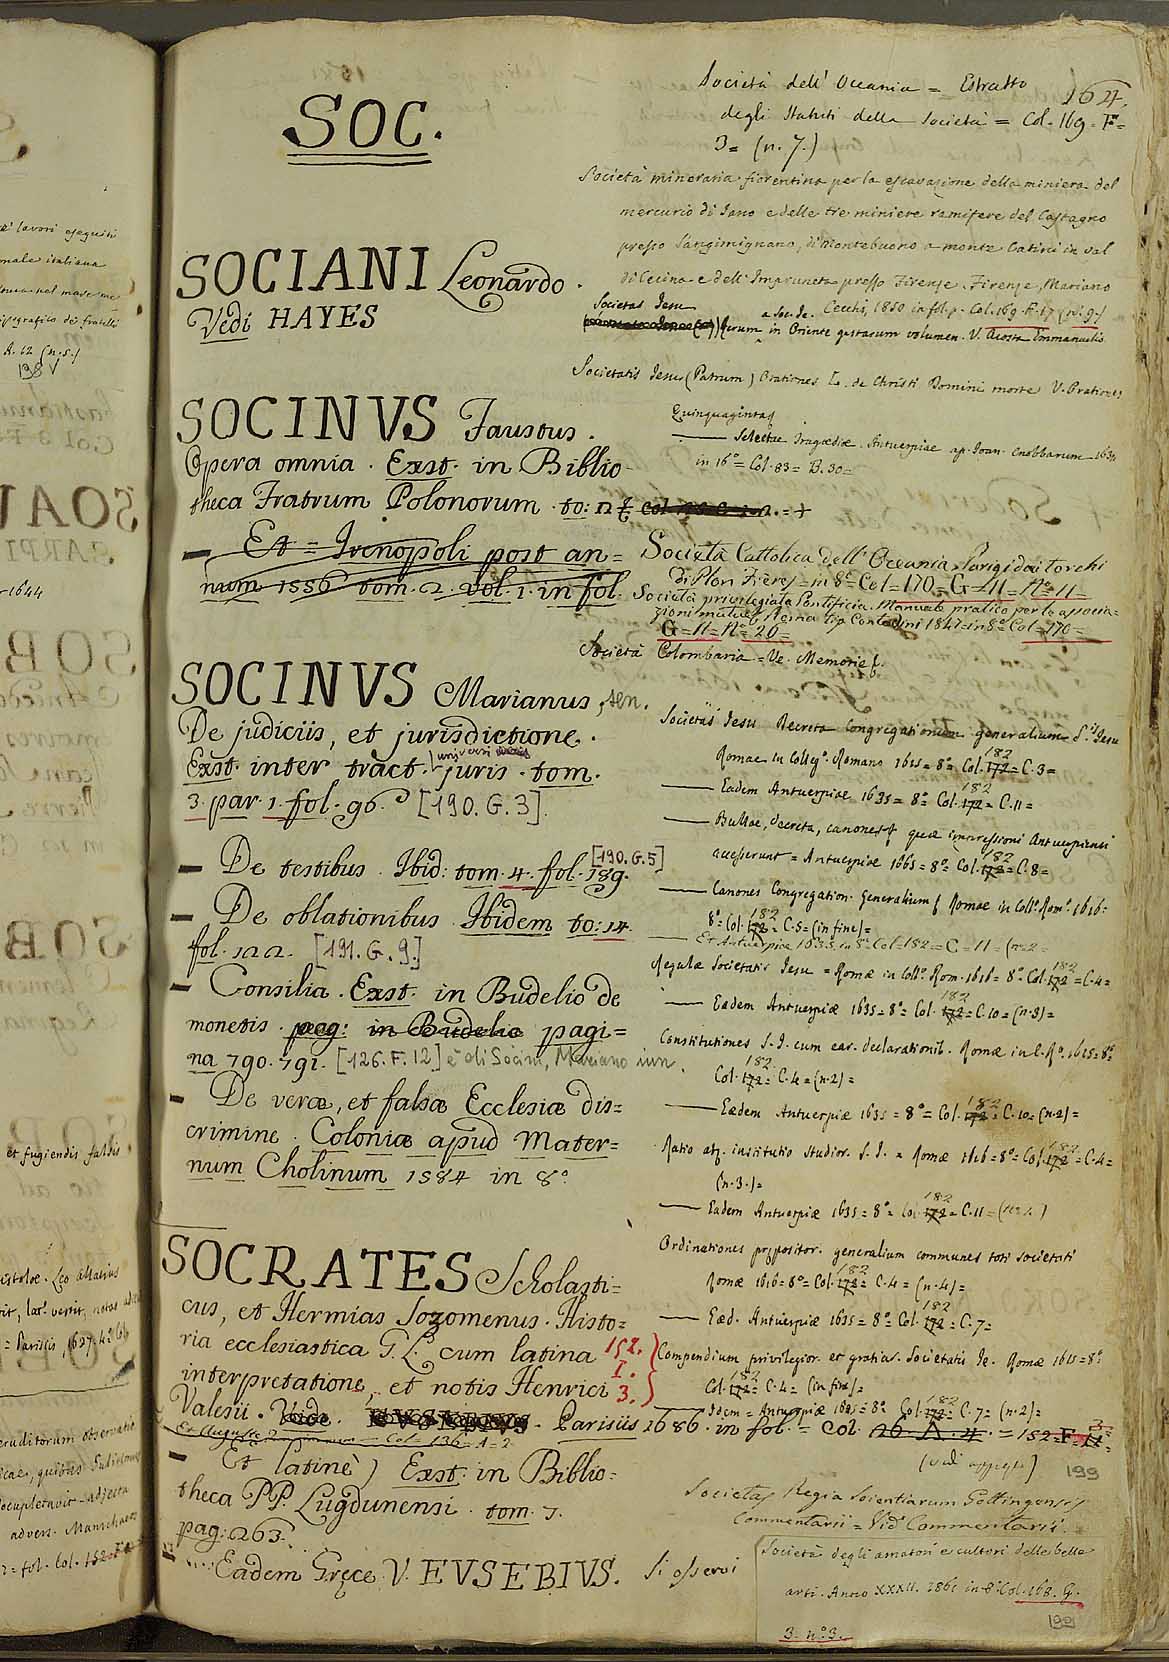 SOC.
164.
SOCIANI Leonardo.
Vedi HAYES
SOCINVS Faustus.
Opera omnia. Exst. in Biblio-
theca Fratrum Polonorum. to:
Et = Irenopoli post an=
num 1556 tom. 2. vol. 1. in fol.
SOCINVS Marianus, sen.
De judiciis, et jurisdictione.
Exst. inter tract. universi juris. tom.
3. par. 1. fol. 96. [190.G.3]
[190.G.5]
— De testibus. Ibid: tom. 4. fol. 189.
— De oblationibus. Ibidem to: 14.
fol. 122. [191.G.9.]
— Consilia. Exst. in Budelio de
monetis. pag: in Budelio pagi=
na 790. 791. [126.F.12] è di Socini, Mariano iun.
— De veræ, et falsæ Ecclesiæ dis=
crimine. Coloniæ apud Mater=
num Cholinum 1584 in 8°
SOCRATES Scholasti=
cus, et Hermias Sozomenus. Histo=
ria ecclesiastica G.L. cum latina 152.
interpretatione, et notis Henrici I. 3.
Valesii. Vide EVSEBIVS. Parisiis 1686. in fol. = Col. 26. A. 4. = 152. F.
— Et latinè) Exst. in Biblio=
theca PP. Lugdunensi. tom. 7.
pag. 263.
— Eadem Gręce. V. EVSEBIVS.
Società dell' Oceania = Estratto
degli Statuti della Società = Col. 169. F. =
3 = (n. 7.)
Società mineraria fiorentina per la escavazione della miniera del
mercurio di Jano e delle tre miniere ramifere del Castagno
presso Sangimignano, di Montebuono a monte Catini in val
di Cecina e dell' Impruneta presso Firenze. Firenze, Mariano
Cecchi, 1850 in fol. p. Col. 169. F. 17 (n. 9.)
Societas Jesu
a Soc. de.
rerum in Oriente gestarum volumen. V. Acosta Emmanuelis
Societatis Jesu (Patrum) Orationes L. de Christi Domini morte V. Orationes
Quinquaginta
— Selectæ Tragœdiæ. Antuerpiae ap. Joan. Cnobbarum 1634
in 16° = Col. 83 = B. 30 =
Società Cattolica dell' Oceania. Parigi dai torchi
di Plon Frères = in 8° Col = 170 = G = 11 = N° 11 =
Società privilegiata Pontificia. Manuale pratico per le associa=
zioni mutue. Roma Tip Contedini 1847 = in 8° Col = 170 =
G = 11 = N° 26 =
Società Colombaria = Ve. Memorie.
Societatis Jesu Decreta Congregationum generalium S. Jesu
Romae in Colleg°. Romano 1615 = 8° = Col. 182 = C. 3 =
— Eadem Antuerpiae 1635 = 8° Col. 182 = C. 11 =
— Bullae, decreta, canones, quae impressioni Antuerpiensi
accesserunt = Antuerpiae 1665 = 8° Col. 182 = C. 8 =
— Canones Congregation. Generalium Romae in Coll° Rom° 1616 =
8° = Col. 182 = C. 5 = (in fine) =
— Et Antuerpiae 1635. in 8° Col = 182 = C = 11 = (n = 2 =
Regulæ Societatis Jesu = Romæ in Coll° Rom. 1616 = 8° Col. 182 = C. 4 =
— Eædem Antuerpiae 1635 = 8° = Col. 182 = C. 10 = (n. 3) =
Constitutiones S.J. cum ear. declarationib. Romæ in C. R°. 1615 = 8°
Col. 182 = C. 4 = (n. 2) =
— Eædem Antuerpiæ 1635 = 8° = Col. 182 = C. 10 = (n. 2) =
Ratio atq. institutio studior. S.J. = Romæ 1616 = 8° = Col. 182 = C. 4 =
(n. 3.) =
— Eadem Antuerpiæ 1635 = 8° = Col. 182 = C. 11 =
Ordinationes præpositor. generalium communes toti societati
Romæ 1616 = 8° = Col. 182 = C. 4 = (n. 4) =
— Eæd. Antuerpiæ 1635 = 8° Col. 182 = C. 7 =
Compendium privilegior. et gratiar. Societatis Je. Romæ 1615 = 8°
Col. 182 = C. 4 = (in fine) =
— Idem = Antuerpiæ 1635 = 8° Col. 182 = C. 7 = (n. 2) =
199
Societas Regia Scientiarum Gottingensis
Commentarii = Vid. Commentarii.
Si osservi
Società degli amatori e cultori delle belle
arti. Anno XXXII. 1861 in 8° Col. 168. G.
3. n° 3.
199